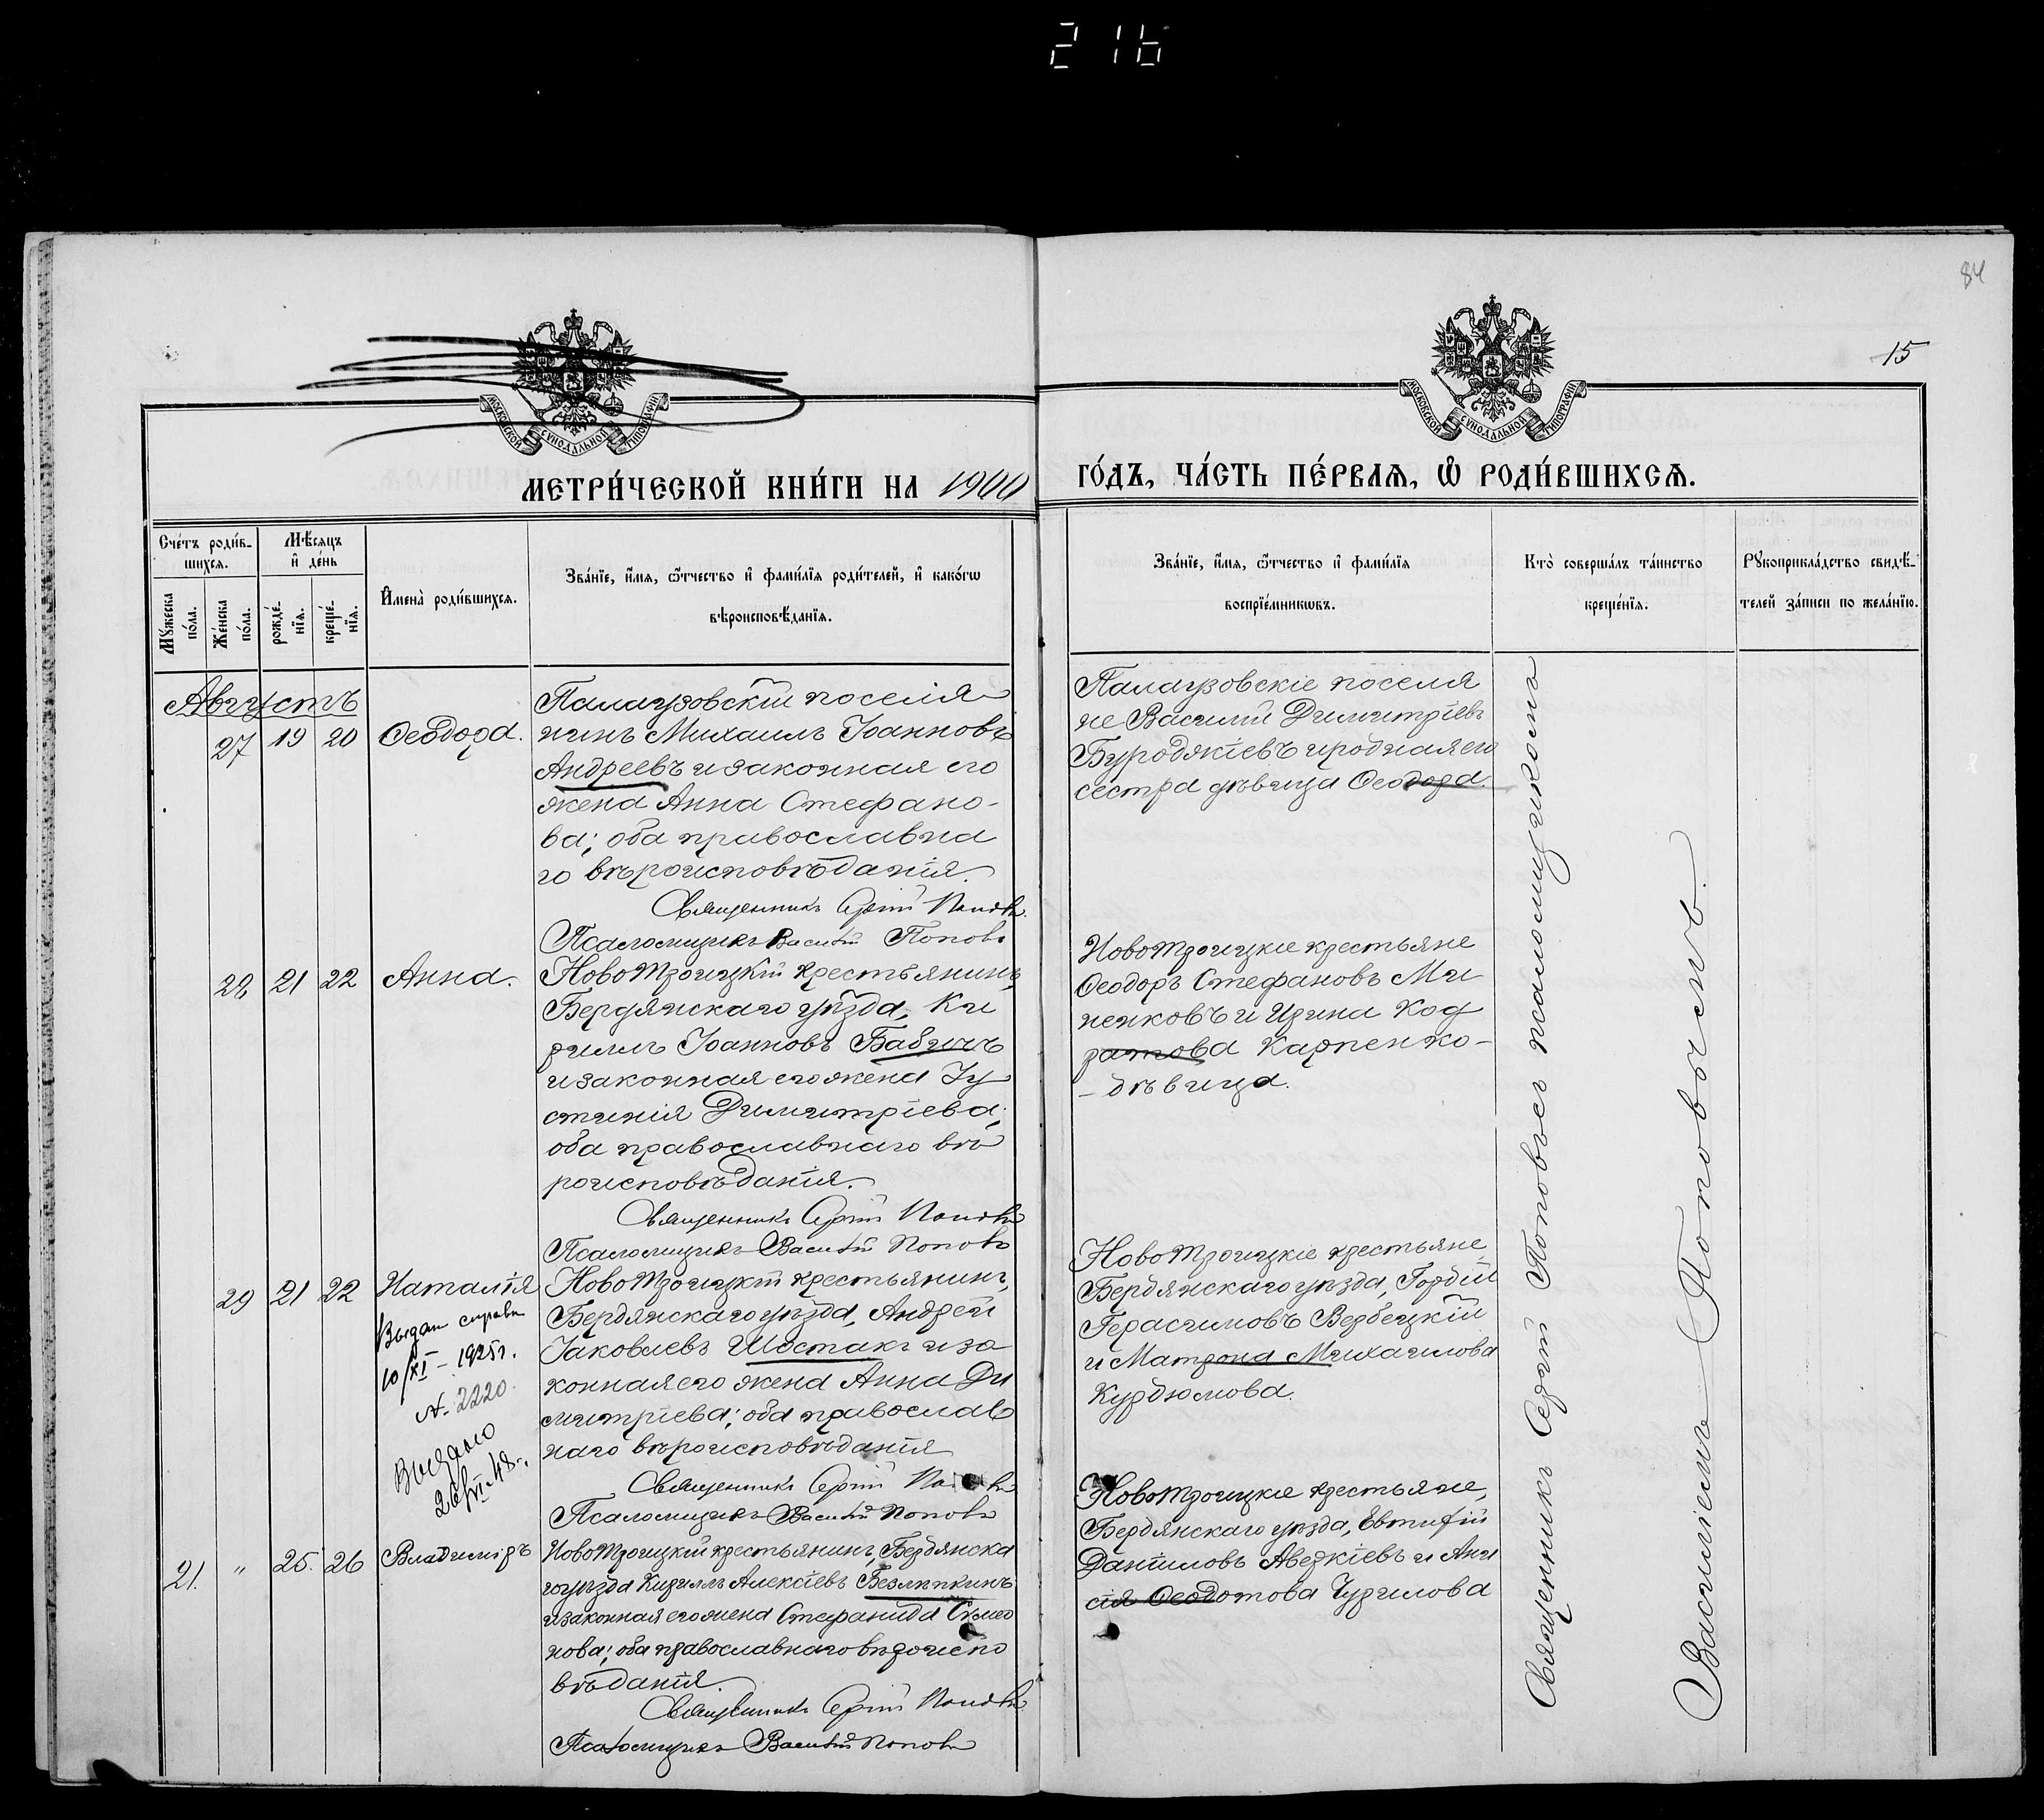 216
84
15
МОСКОВСКОЙ СѴНОДАЛЬНОЙ ТИПОГРАФІИ
МОСКОВСКОЙ СѴНОДАЛЬНОЙ ТИПОГРАФІИ
МЕТРИ́ЧЕСКОЙ КНИ́ГИ НА 1900 ГО́ДЪ, ЧА́СТЬ ПЕ́РВАѦ, Ѽ РОДИ́ВШИХСѦ.
Сче́тъ роди́в-
шихсѧ.
Мꙋ́жеска по́ла.
Же́нска по́ла.
Мѣ́сѧцъ и҆ де́нь
рожде́-нїѧ.
креще́-нїѧ.
И҆мена̀ роди́вшихсѧ.
Зва́нїе, и҆́мѧ, ѻ҆́тчество и҆ фами́лїѧ роди́телей, и҆ како́гѡ
вѣроисповѣ́данїѧ.
Зва́нїе, и҆́мѧ, ѻ҆́тчество и҆ фами́лїѧ
воспрїе́мникѡвъ.
Кто̀ соверша́лъ та́инство
креще́нїѧ.
Рꙋкоприкла́дство свидѣ́-
телей за́писи по жела́нїю.
Августъ
27 19 20 Ѳеодора.
Палаузовскій поселя
нинъ Михаилъ Іоанновъ
Андреевъ и законная его
жена Анна Стефано-
ва; оба православна
го вѣроисповѣданія.
Священникъ Сергій Поповъ
Псаломщикъ Василій Поповъ
Палаузовскіе поселя
не Василій Димитріевъ
Бурджіевъ и родная его
сестра дѣвица Ѳеодора.
28 21 22 Анна.
Ново Троицкій крестьянинъ,
Бердянскаго уѣзда, Ки
риллъ Іоанновъ Бабичъ
и законная его жена Іу
стинія Димитріева;
оба православнаго вѣ
роисповѣданія.
Священникъ Сергій Поповъ
Псаломщикъ Василій Поповъ
Ново Троицкіе крестьяне
Ѳеодоръ Стефановъ Ми
ненковъ и Ирина Код
ратова Карпенко-
- дѣвица.
29 21 22 Наталія
Выдан справк
10/XI - 1925 г.
№ 2220.
Выдано
26/VI-48 г.
Ново Троицкій крестьянинъ,
Бердянскаго уѣзда, Андрей
Іаковлевъ Шостакъ и за
конная его жена Анна Ди
митріева; оба православ
наго вѣроисповѣданія
Священникъ Сергій Поповъ
Псаломщикъ Василій Поповъ
Ново Троицкіе крестьяне,
Бердянскаго уѣзда, Гордій
Герасимовъ Вербецкій
и Матрона Михаилова
Курдюмова.
21. " 25. 26 Владиміръ
Ново Троицкій крестьянинъ, Бердянска
го уѣзда Кириллъ Алексіевъ Безлипкинъ
и законная его жена Стефанида Симео
нова; оба православнаго вѣроиспо
вѣданія.
Священникъ Сергій Поповъ
Псаломщикъ Василій Поповъ
Ново Троицкіе крестьяне,
Бердянскаго уѣзда, Евтихій
Даніиловъ Аверкіевъ и Ани
сія Ѳеодотова Чурилова
Священникъ Сергій Поповъ съ псаломщикомъ
Василіемъ Поповымъ.